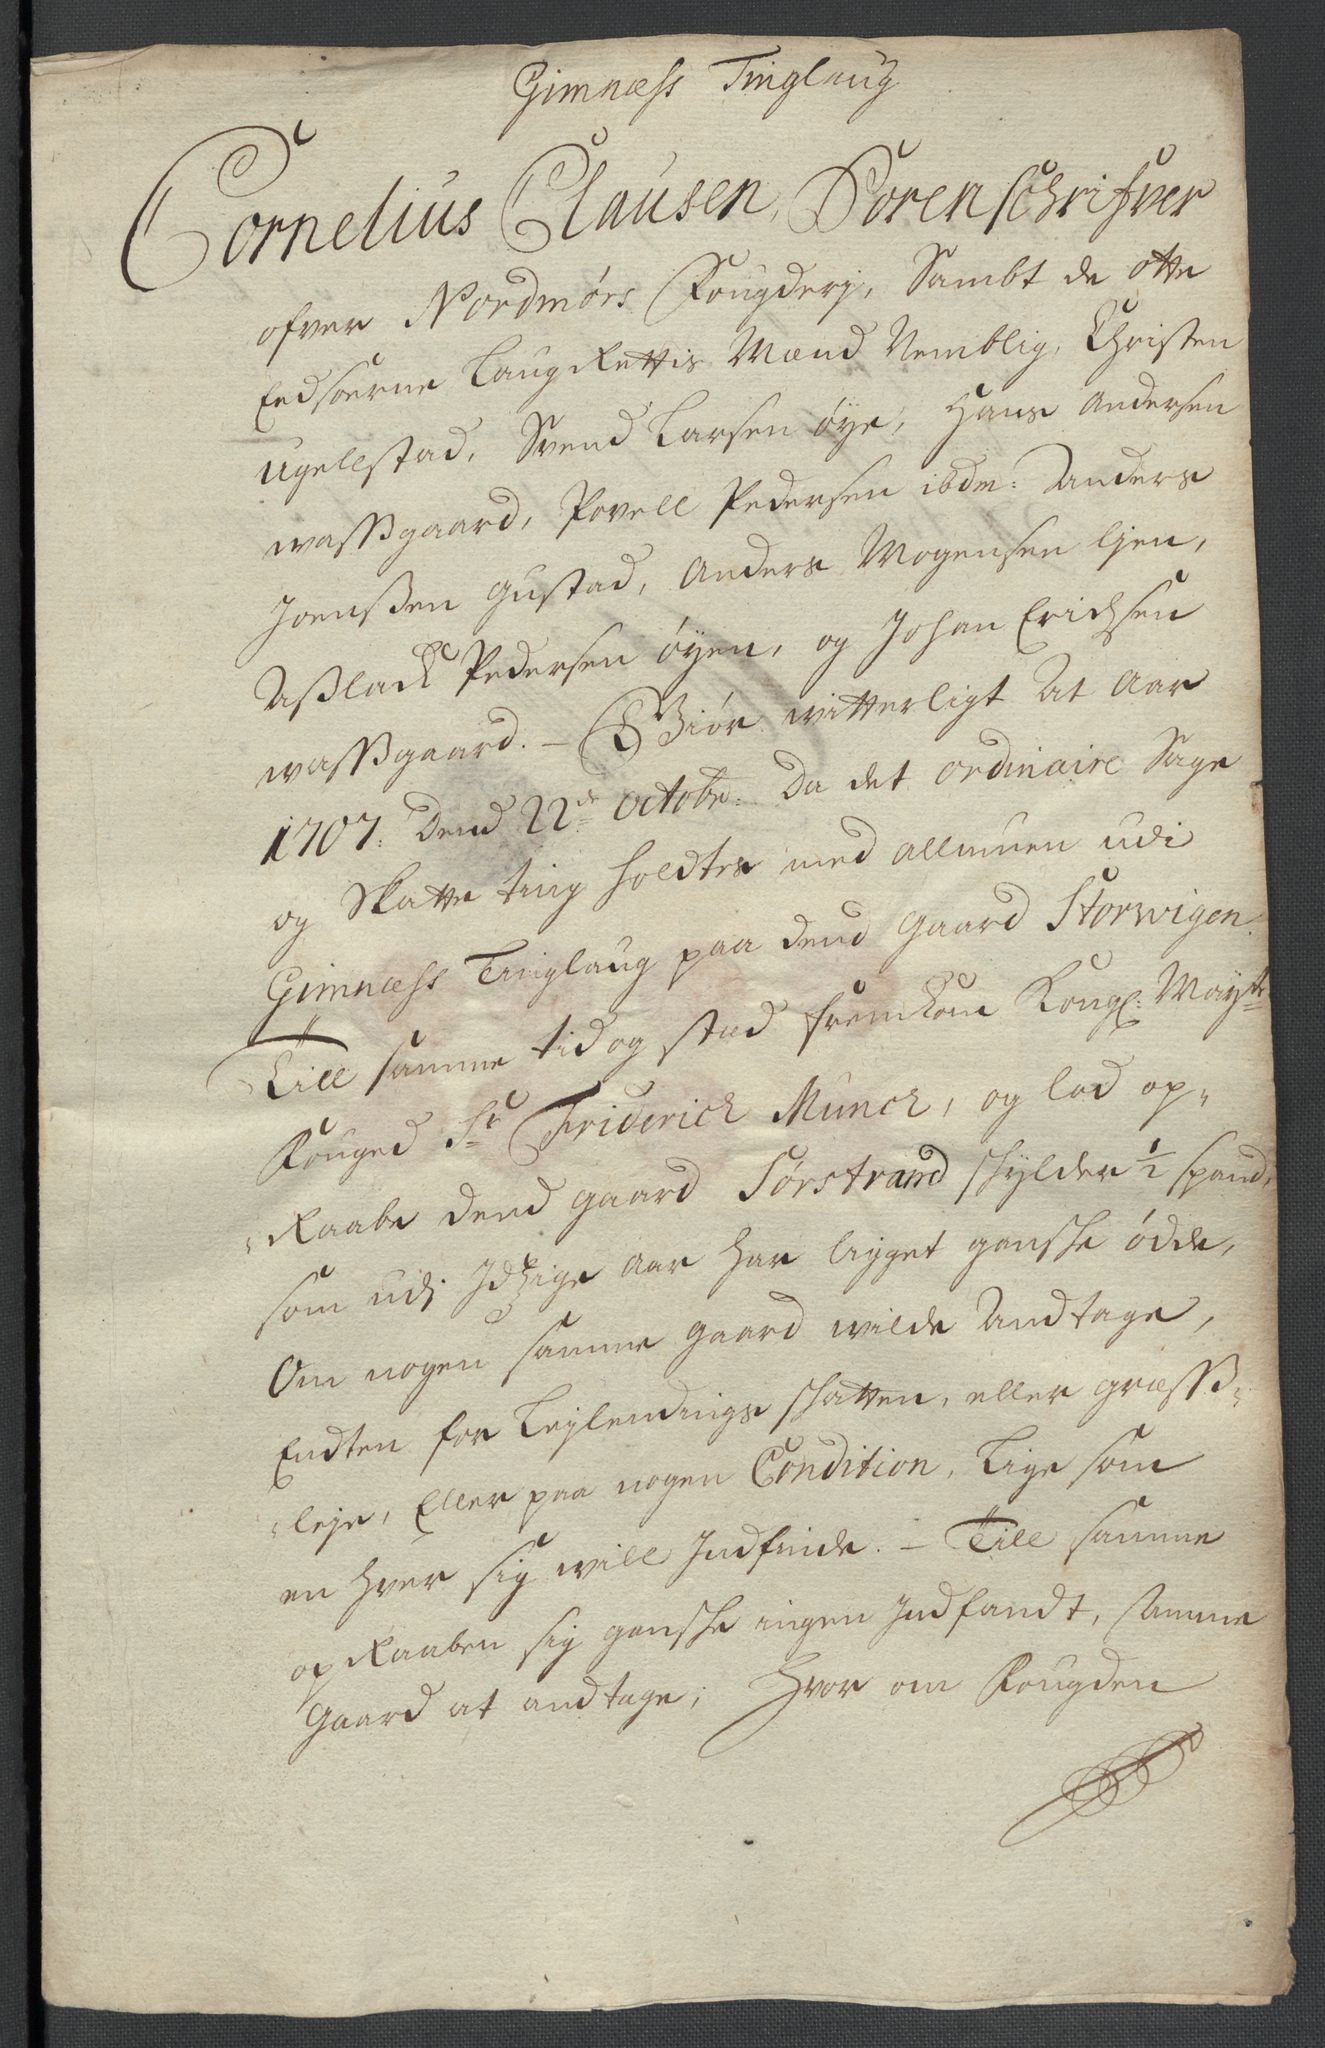 Gimnæss Tinglaug
Cornelius Clausen, Sorenschrifver
ofver Nordmørs Fougderj, Sambt de otte
Eedsoerne Laug Rettis Mænd Nemblig, Christen
Ugellstad, Svend Larsen Øye, Hans Andersen
waßgaard, Povell Pedersen ibdm: Anders
Joenßen Gustad, Anders Mogensen Lien,
Aßlack Pedersen Øyen, og Johan Erichsen
waßgaard. – Giør witterligt At Aar
1707. Dend 22de octobr: Da det ordinaire Sage
og Skatte ting holdtes med allmuen udi
Gimnæss Tinglaug paa dend Gaard Storwigen.
Till samme tid og stæd fremkom Kongl: Mayts
Fouged Sr Friderich Munch, og lod op-
Raabe dend gaard Sørstrand schylder ½ spand,
som udj Idtzige Aar har ligget gansche øede,
Om nogen samme gaard wilde Andtage,
Endten for Leylendings schatten, eller græss-
leje, Eller paa nogen Condition, Lige som
en hver sig will Indfinde. – Till samme
op Raaben sig gansche ingen Indfandt, samme
Gaard at andtage; Hvor om Fougden